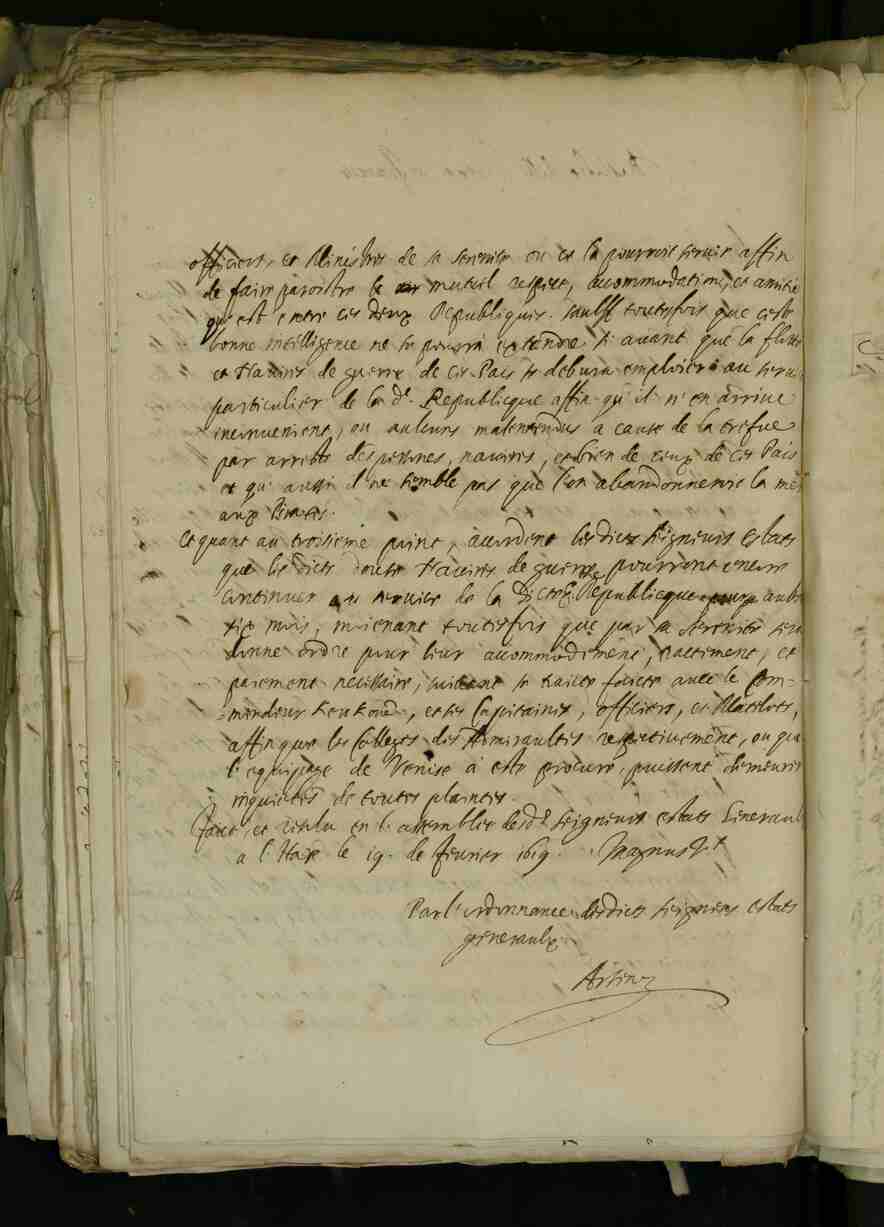 officiers, et Ministres de sa serenite ou et la pourroit servir affin
de faire paroistre le mutuil respect, accommodation, et amitie
qu'est entre ces deux Republiques. saulff toutesfois que ceste
bonne intelligence ne se pourra extendre si avant que la flotte
et Navires de guerre de ce Pais se debura emploier au servi
particulier de la de. Republicque affin qu'il n'en arrive
inconvenient, ou aulcuns malentendus a cause de la trefue
par arrests des personnes, navires, et bien de ceux de ce Pais
et qu'aussi il ne semble pas que l'on abandonneroit la mer
aux Pirates.
Et quant au troisieme point, accordent lesdicts Seigneurs Estats
que lesdicts douse Navires de guerre pourront encore
continuer au service de la dicte Republicque aultre
six mois, moienant toutesfois que par sa Serenite soit
donne ordre pour leur accommodement, tractement, et
paiement necessaire, suivant le traicte faicte avec le Com-
mendeur, et ses Capitaines, officiers, et Matelots,
affin que les Colleges des Admiraultes respectivement, ou que
l'equipage de Venise a este procuré, puissent demeurer
inquietes de toutes plaintes.
Faict, et resolu en l'assemblee desd. Seigneurs Estats Generaul
a l'Haye le 19. de février 1619. Magnus Vt
Par l'ordonnance desdicts Seigneurs Estats
generaulx.